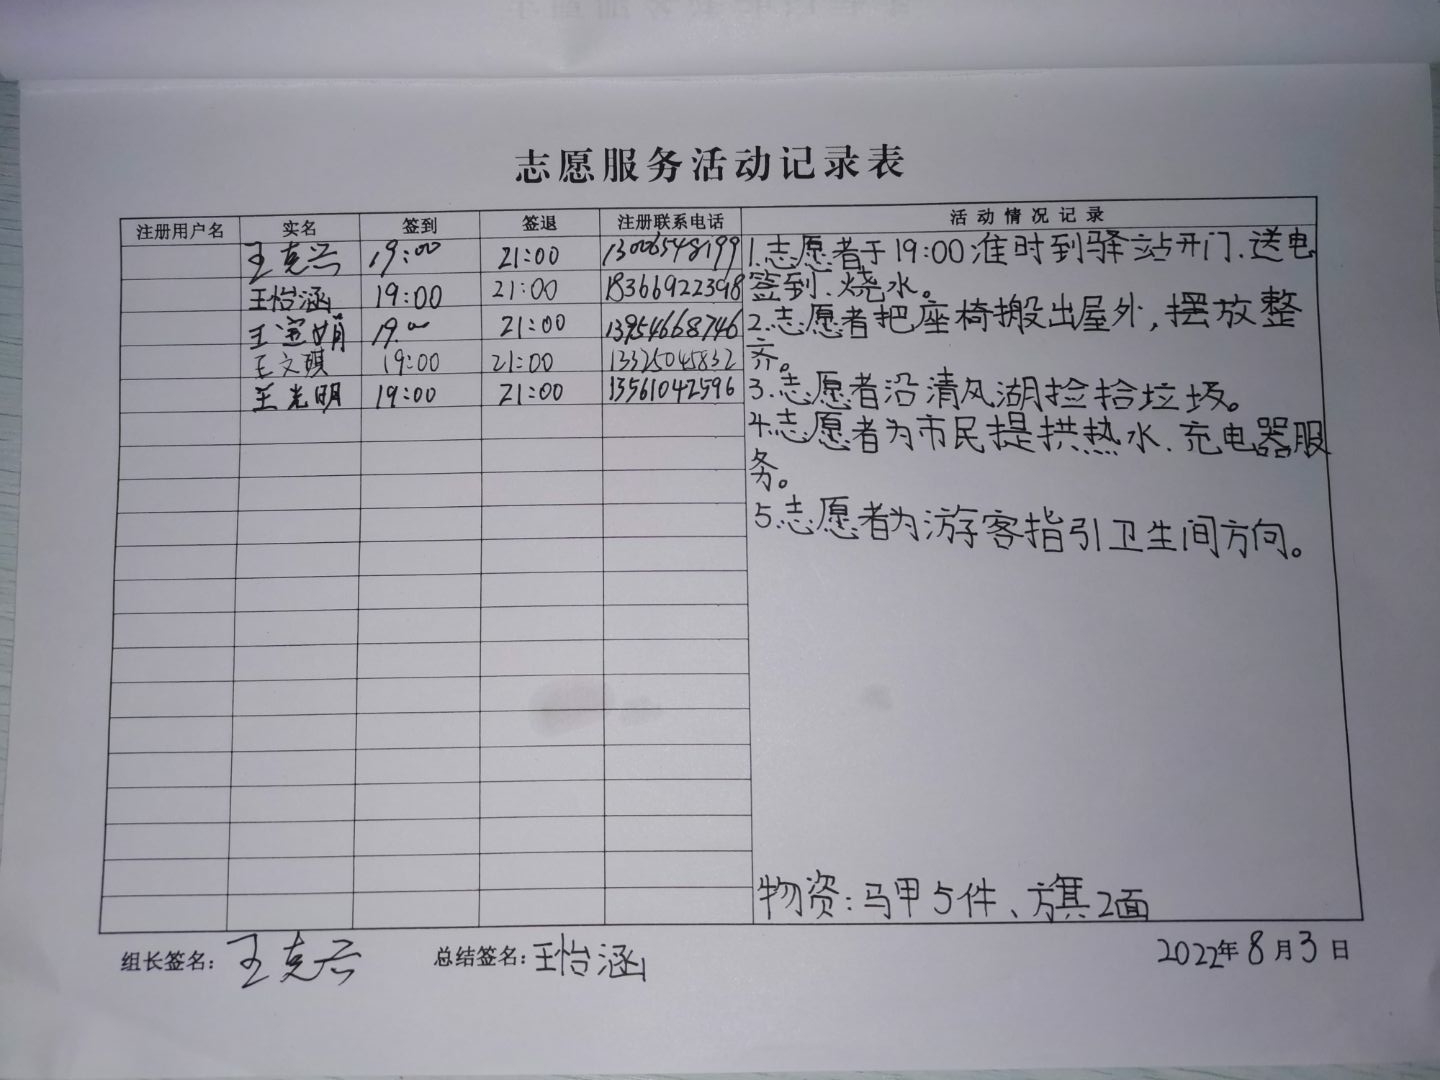 志愿服务活动记录表
注册用户名 实名 签到 签退 注册联系电话 活动情况记录
王克兴 19:00 21:00 13006548199
王怡涵 19:00 21:00 18366922398
王宣娟 19:00 21:00 13954668746
王文琪 19:00 21:00 13325045832
王光明 19:00 21:00 13561042596
1.志愿者于19:00准时到驿站开门、送电
签到、烧水。
2.志愿者把座椅搬出屋外，摆放整
齐。
3.志愿者沿清风湖捡拾垃圾。
4.志愿者为市民提拱热水、充电器服
务。
5.志愿者为游客指引卫生间方向。
物资：马甲5件、旗2面
组长签名：王克兴 总结签名：王怡涵 2022年8月3日